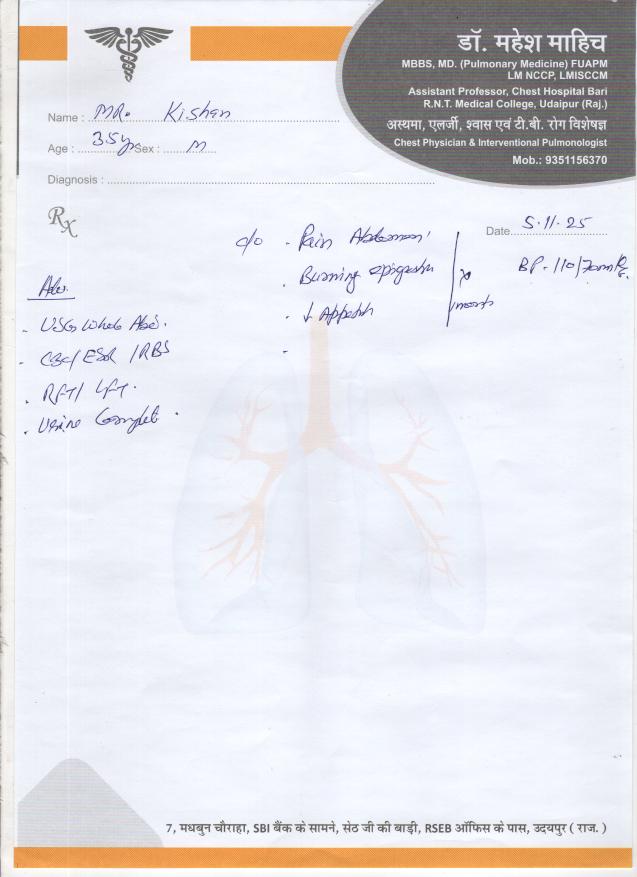 डॉ. महेश माहिच
MBBS, MD. (Pulmonary Medicine) FUAPM
LM NCCP, LMISCCM
Assistant Professor, Chest Hospital Bari
R.N.T. Medical College, Udaipur (Raj.)
अस्थमा, एलर्जी, श्वास एवं टी.बी. रोग विशेषज्ञ
Chest Physician & Interventional Pulmonologist
Mob.: 9351156370
Name : MR. Kishan
Age : 35y Sex : M
Diagnosis :
Rx
Date 5.11.25
c/o - Pain Abdomen
BP - 110/70mmHg
- Burning epigastri
- ↓ Appetite
Adv.
- USG Whole Abd.
- CBC/ESR/RBS
- RFT/LFT.
- Urine Complet.
7, मधबुन चौराहा, SBI बैंक के सामने, सेठ जी की बाड़ी, RSEB ऑफिस के पास, उदयपुर ( राज. )